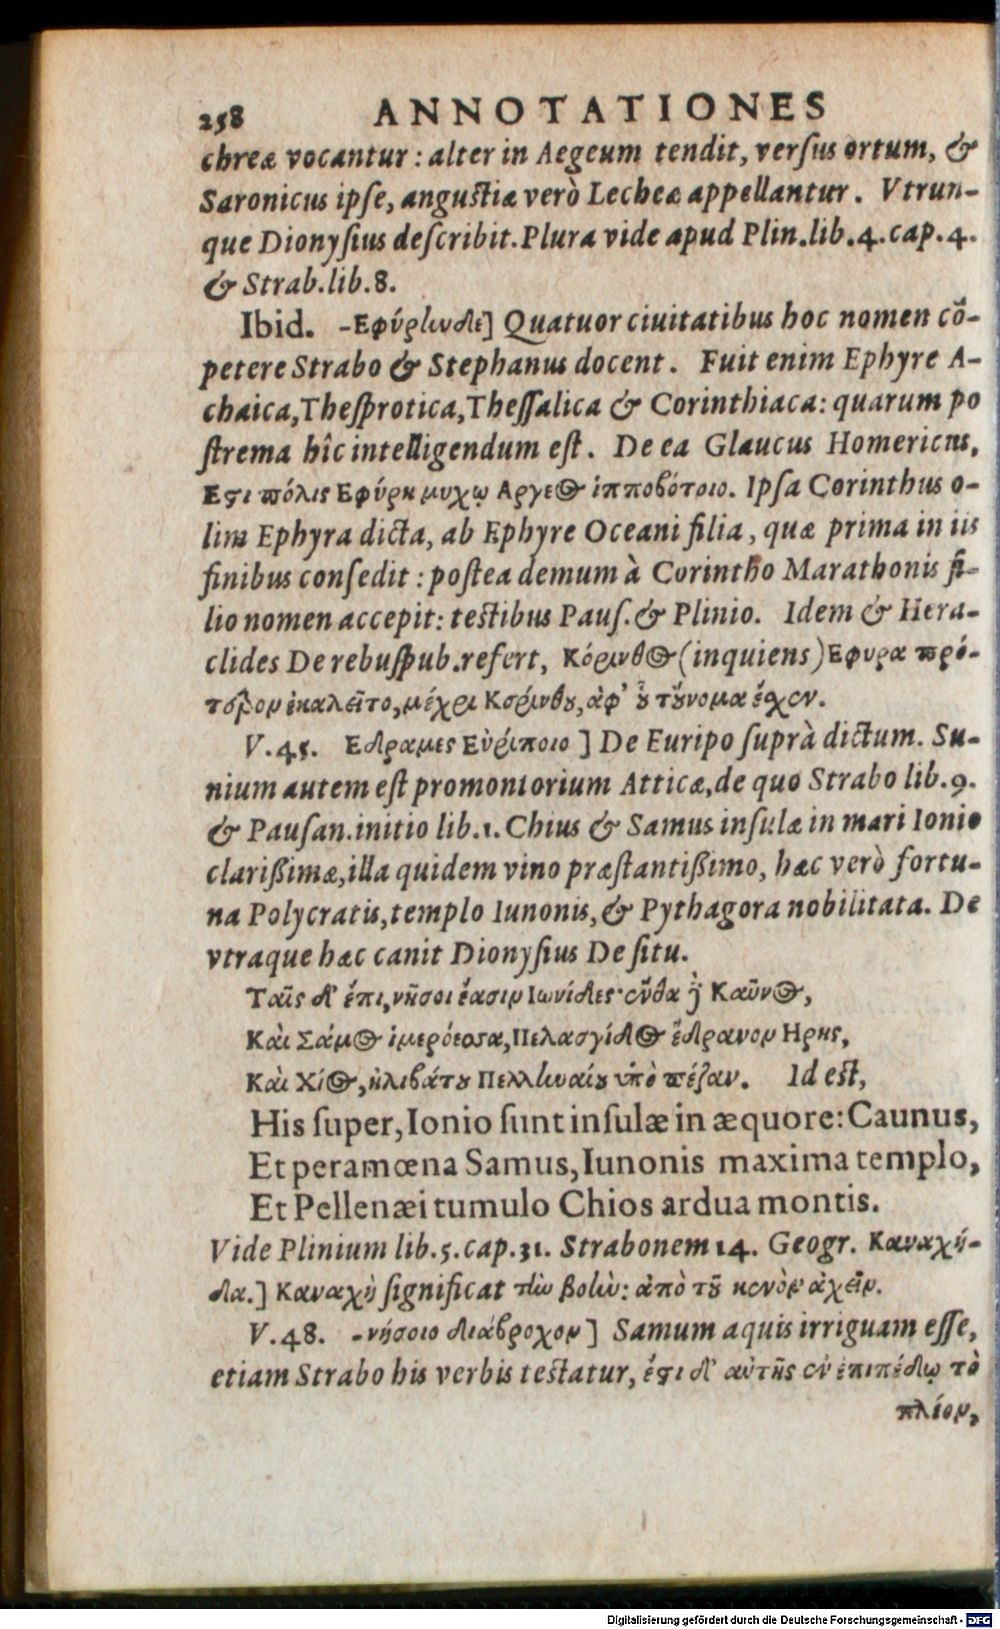 258 ANNOTATIONES
chreæ vocantur: alter in Aegeum tendit, verſus ortum, &
Saronicus ipſe, anguſtiæ verò Lecheæ appellantur. Vtrun-
que Dionyſius deſcribit. Plura vide apud Plin. lib. 4. cap. 4.
& Strab. lib. 8.
Ibid. -Εφύρlωδε] Quatuor ciuitatibus hoc nomen cō-
petere Strabo & Stephanus docent. Fuit enim Ephyre A-
chaica, Theſprotica, Theſſalica & Corinthiaca: quarum po
ſtrema hîc intelligendum eſt. De ea Glaucus Homericus,
Εϛι πόλις Εφύρη μυχῷ Αργε@ ἱπποβότοιο. Ipſa Corinthus o-
lim Ephyra dicta, ab Ephyre Oceani filia, quæ prima in iis
finibus conſedit: poſtea demum à Corintho Marathonis fi-
lio nomen accepit: teſtibus Pauſ. & Plinio. Idem & Hera-
clides De rebuſpub. refert, Κόρινθ@ (inquiens) Εφυρα πρό-
τερον ἐκαλεῖτο, μέχρι Κορίνθȣ, ἀφ' ȣ̔͂ τȣ̓́νομα ἔχεν.
V. 45. Εδραμες Εὐρίποιο] De Euripo ſuprà dictum. Su-
nium autem eſt promontorium Atticæ, de quo Strabo lib. 9.
& Pauſan. initio lib. 1. Chius & Samus inſulæ in mari Ionio
clarißimæ, illa quidem vino præſtantißimo, hæc verò fortu-
na Polycratis, templo Iunonis, & Pythagora nobilitata. De
vtraque hæc canit Dionyſius De ſitu.
Ταῖς δ' ἔπι, νῆσοι ἔασιν Ιωνίδες· ἔνθα ϗ̀ Καῦν@,
Καὶ Σάμ@ ἱμερόεσσα, Πελασγίδ@ ἕδρανον Ηρης,
Καὶ Χί@, ἠλιβάτȣ Πελλlωαίȣ ὑπὸ πέζαν. Id eſt,
His ſuper, Ionio ſunt inſulæ in æquore: Caunus,
Et peramœna Samus, Iunonis maxima templo,
Et Pellenæi tumulo Chios ardua montis.
Vide Plinium lib. 5. cap. 31. Strabonem 14. Geogr. Καναχή-
δα.] Καναχὴ ſignificat τlὼ βοlὼ: ἀπὸ τȣ͂ κενὸν ἀχεῖν.
V. 48. -νήσοιο διάβροχον] Samum aquis irriguam eſſe,
etiam Strabo his verbis teſtatur, ἔϛι δ' αὐτῆς ἐν ἐπιπέδῳ τὸ
πλέον,
Digitalisierung gefördert durch die Deutsche Forschungsgemeinschaft - DFG